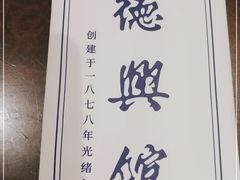 德興館
创建于一八七八年光绪